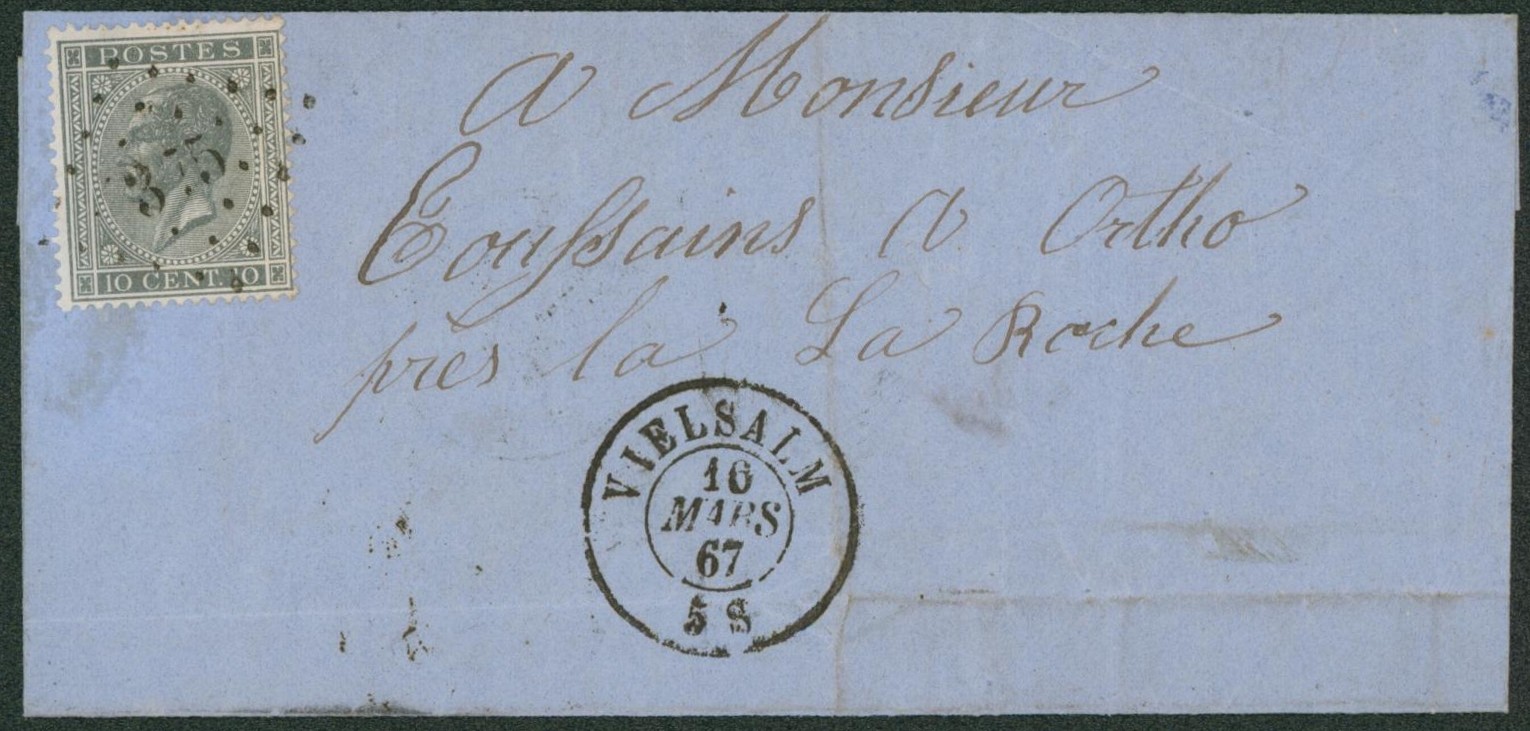 POSTES
375
10 CENT. 10
A Monsieur
Toussains A Ortho
près la La Roche
VIELSALM
16
MARS
67
5 S